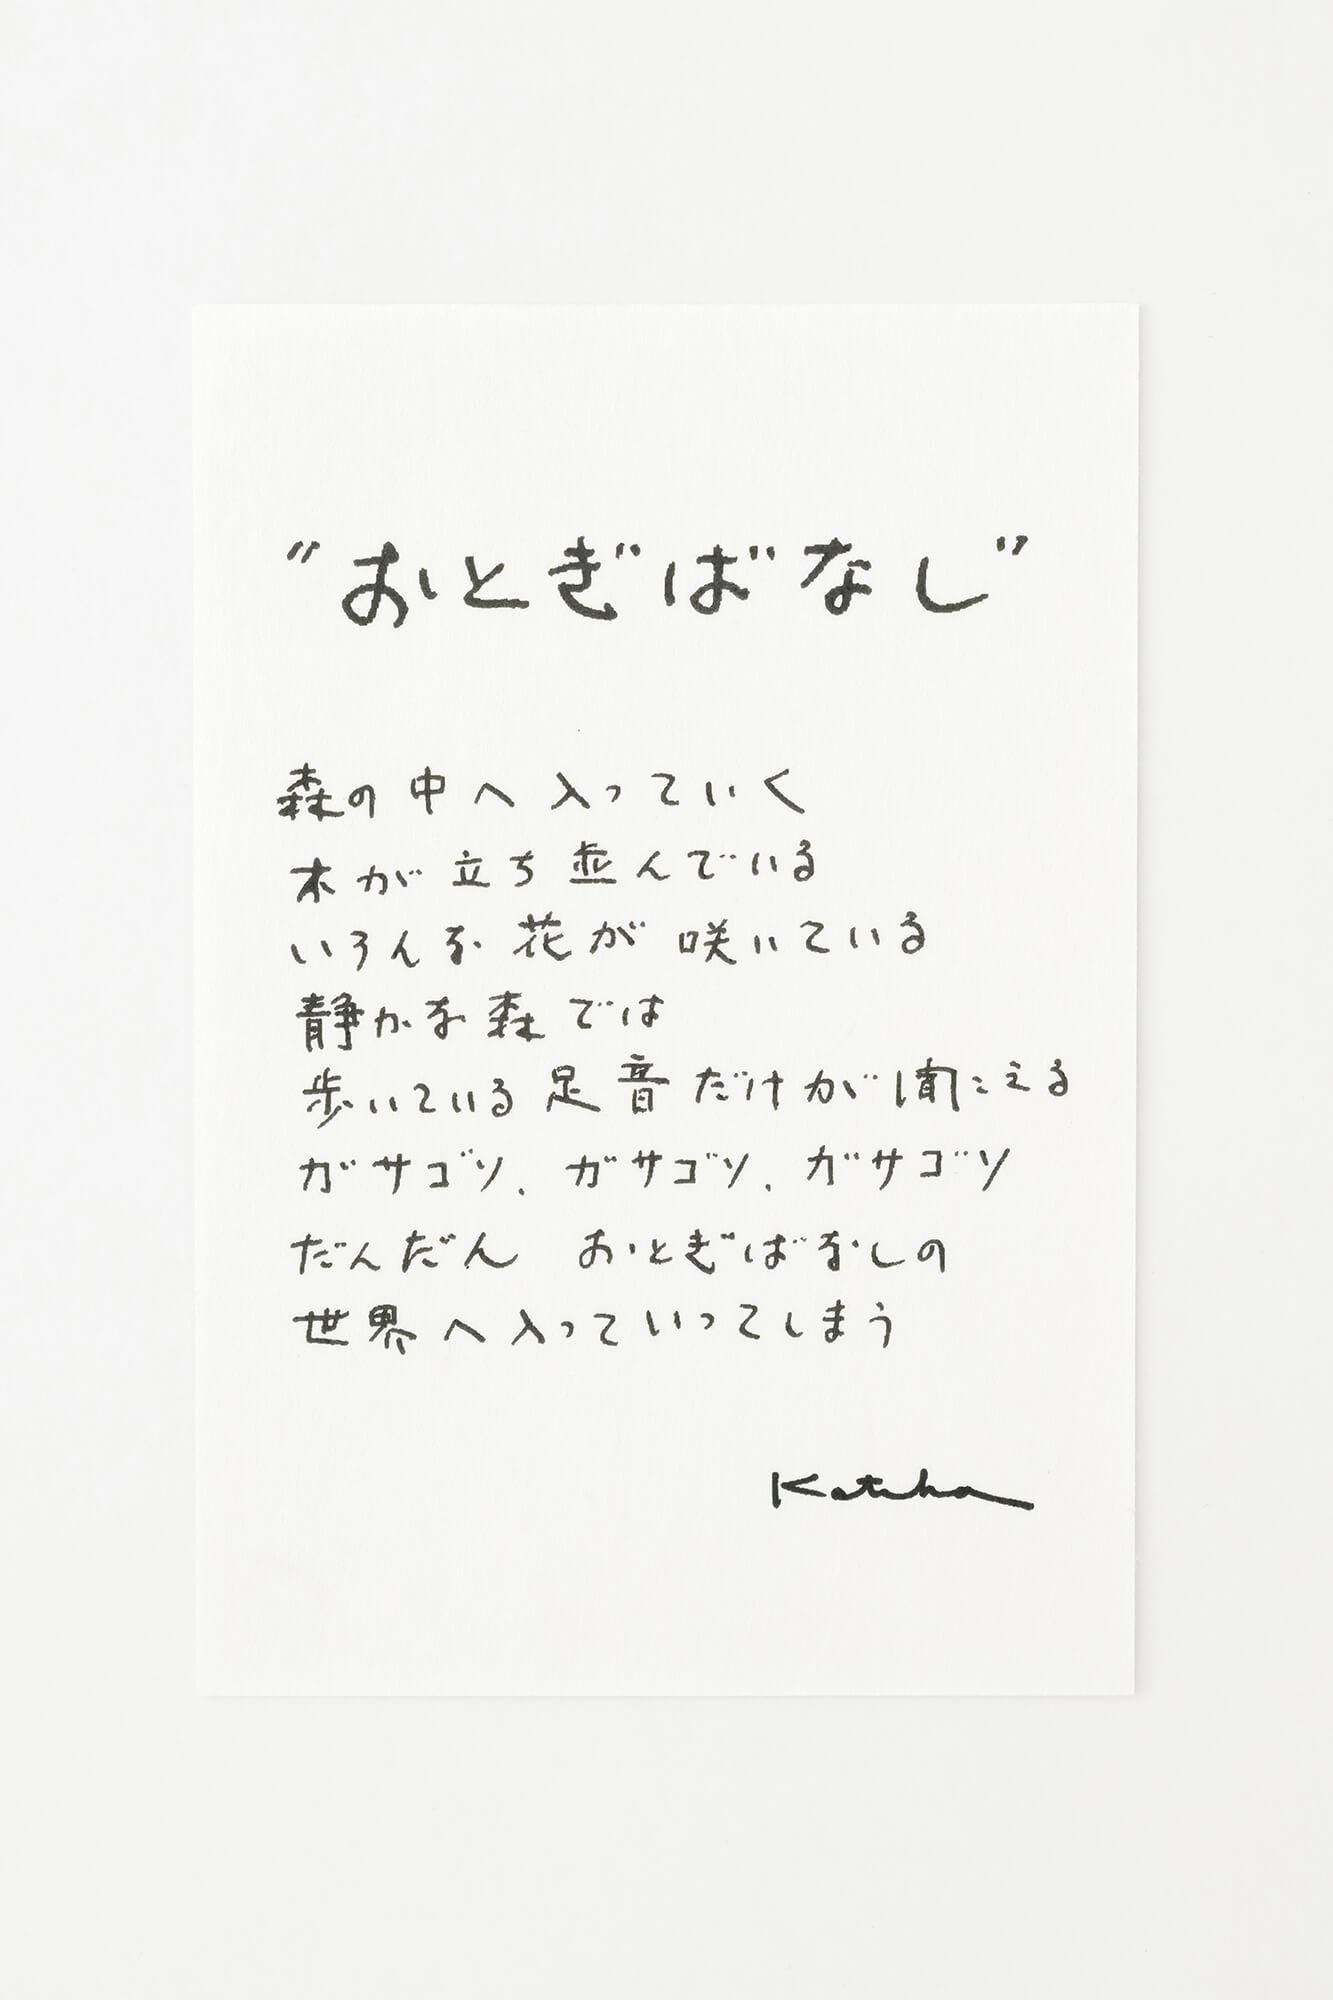 "おとぎばなし"
森の中へ入っていく
木が立ち並んでいる
いろんな花が咲いている
静かな森では
歩いている足音だけが聞こえる
ガサゴソ、ガサゴソ、ガサゴソ
だんだん おとぎばなしの
世界へ入っていってしまう